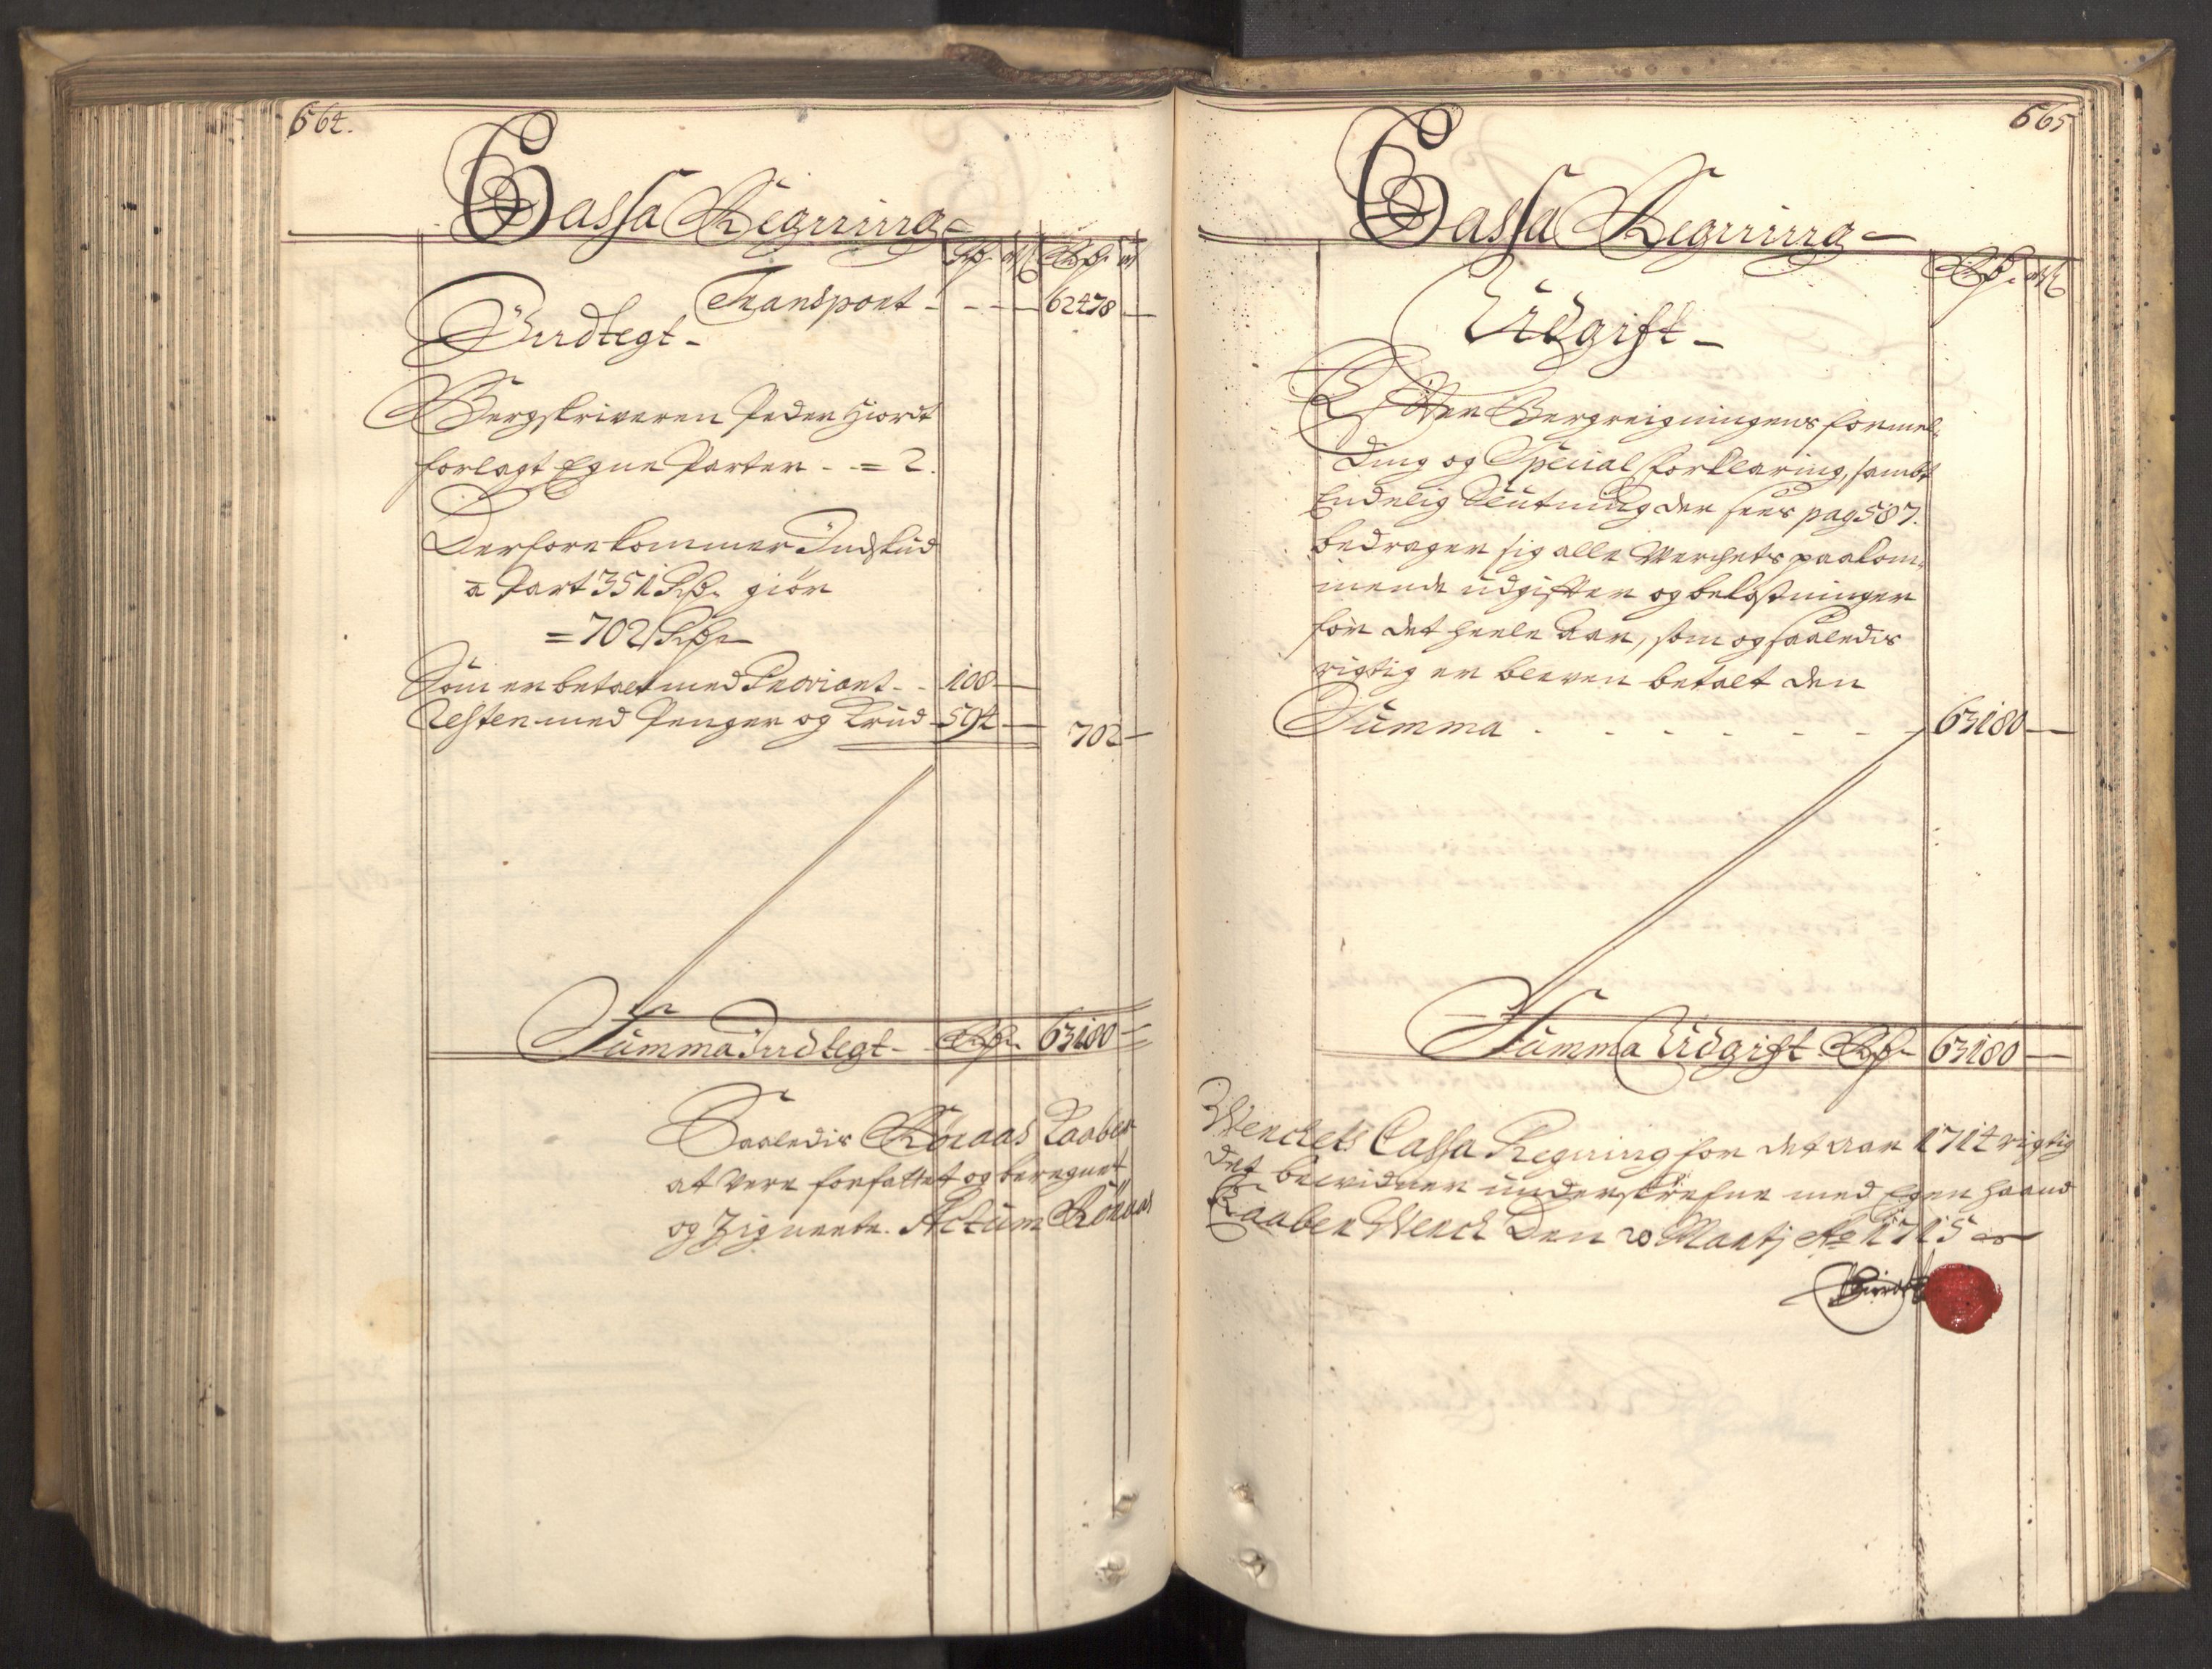 664.
Cassa Regning
Rdr. mk Rdr. mk
Transport - - - 62478 -
Indtegt -
Bergskriveren Peder Hiort
forlagt Egne Parter - = 2.
Derfore kommer Indskud
a Part 351 Rdr. giör
= 702 Rdr.
Som er betalt med Proviant - - 108 -
Resten med Penger og Krud - 594 - 702 -
Summa Indtegt - Rdr. 63180 -
Saaledis Röraas Kaaber
at vere forfattet og beregnet
og Zignerte. Actum Röraas
665
Cassa Regning -
Rdr. mk
Udgift -
Efter Bergreigningens formel-
ding og Special forklaring, sambt
Endelig Slutning der sees pag 587.
bedrager sig alle Werchets paakom-
mende udgifter og bekostninger
for det heele Aar, som og saaledis
rigtig er bleven betalt den
Summa - - - - - - 63180 -
Summa Udgift Rdr. 63180 -
Werckets Cassa Regning for det Aar 1714 rigtig
det bevidner underskrefne med Egen haand
Kaaber Werck Den 20 Martj Ao 1715
PHiordt